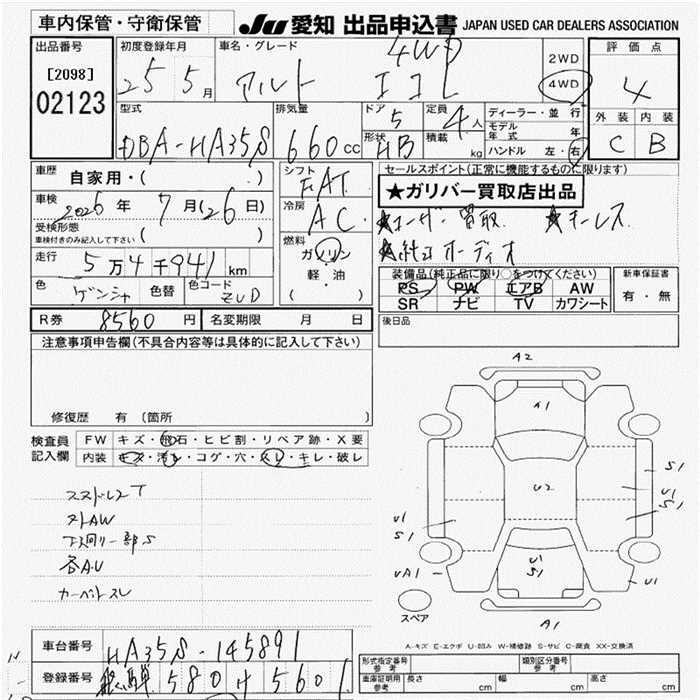 車内保管・守衛保管
JU 愛知 出品申込書 JAPAN USED CAR DEALERS ASSOCIATION
出品番号
[2098]
02123
初度登録年月
25 5月
車名・グレード
アルト エコL 4WD
2WD
4WD
評価点
4
外装 内装
C B
型式
DBA-HA35S
排気量
660cc
ドア 5
形状 HB
定員 4人
積載 kg
ディーラー・並行
モデル年式 年
ハンドル 左・右
車歴
自家用・( )
車検
2026年 7月(26日)
受検形態
車検付きのみ記入して下さい ( )
走行
5万4千941km
色 ゲンシャ 色替 色コード ZUD
シフト
FAT
冷房
AC
燃料
ガソリン
軽・油
( )
セールスポイント(正常に機能するものに限ります)
★ガリバー買取店出品
★ユーザー買取 ★キーレス
★純正オーディオ
装備品(純正品に限り○をつけてください)
PS PW エアB AW
SR ナビ TV カワシート
新車保証書
有・無
R券 8560円 名変期限 月 日
後日品
注意事項申告欄(不具合内容等は具体的に記入して下さい)
修復歴 有 〔箇所
検査員記入欄
FW キズ・飛石・ヒビ割・リペア跡・X要
内装 キズ・汚れ・コゲ・穴・スレ・キレ・破レ
スタドレスT
外AW
下廻リ一部S
各AU
カーペットスレ
A2
A1
U2
S1
U1
S1
U1
S1
U1
S1
UA1
U1
A1
スペア
A-キズ E-エクボ U-凹み W-補修跡 S-サビ C-腐食 XX-交換済
車台番号 HA35S-145891
登録番号 飛騨 580 H 5601
形式指定番号 参考
類別区分番号 参考
車庫証明 参考 長さ cm 幅 cm 高さ cm